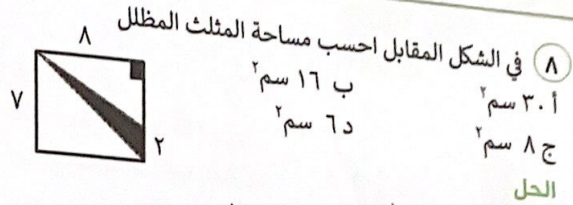 ٨ في الشكل المقابل احسب مساحة المثلث المظلل
أ ٣٠ سم٢ ب ١٦ سم٢
ج ٨ سم٢ د ٦ سم٢
الحل
٨
٧
٢